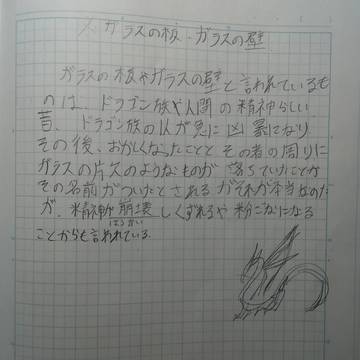 ガラスの板・ガラスの壁
ガラスの板やガラスの壁と言われているも
のは、ドラゴン族や人間の精神らしい
昔、ドラゴン族の人が急に凶暴になり
その後、おかしくなったこととその者の周りに
ガラスの片欠のようなものが落ちていたことか
その名前がついたとされるがそれが本当なのだ
が、精神が崩壊しくずれるや粉こなになる
ほうかい
ことからも言われている。